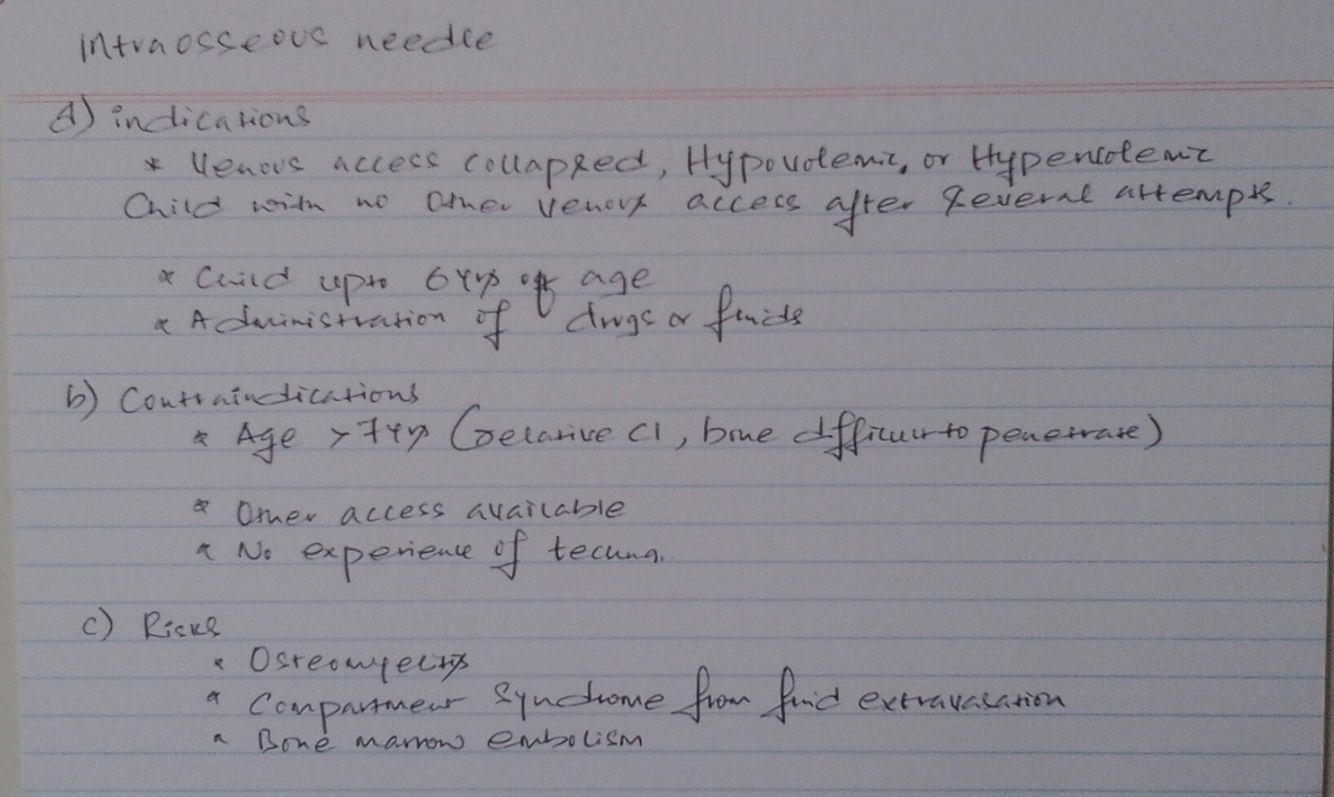 Intraosseous needle
a) indications
* Venous access collapsed, Hypovolemic, or Hypervolemic
Child with no other venous access after several attempts.
* Child upto 6 yrs of age
* Administration of drugs or fluids
b) Contraindications
* Age > 7 yrs (relative CI, bone difficult to penetrate)
* Other access available
* No experience of techng.
c) Risks
* Osteomyelitis
* Compartment Syndrome from fluid extravasation
* Bone marrow embolism